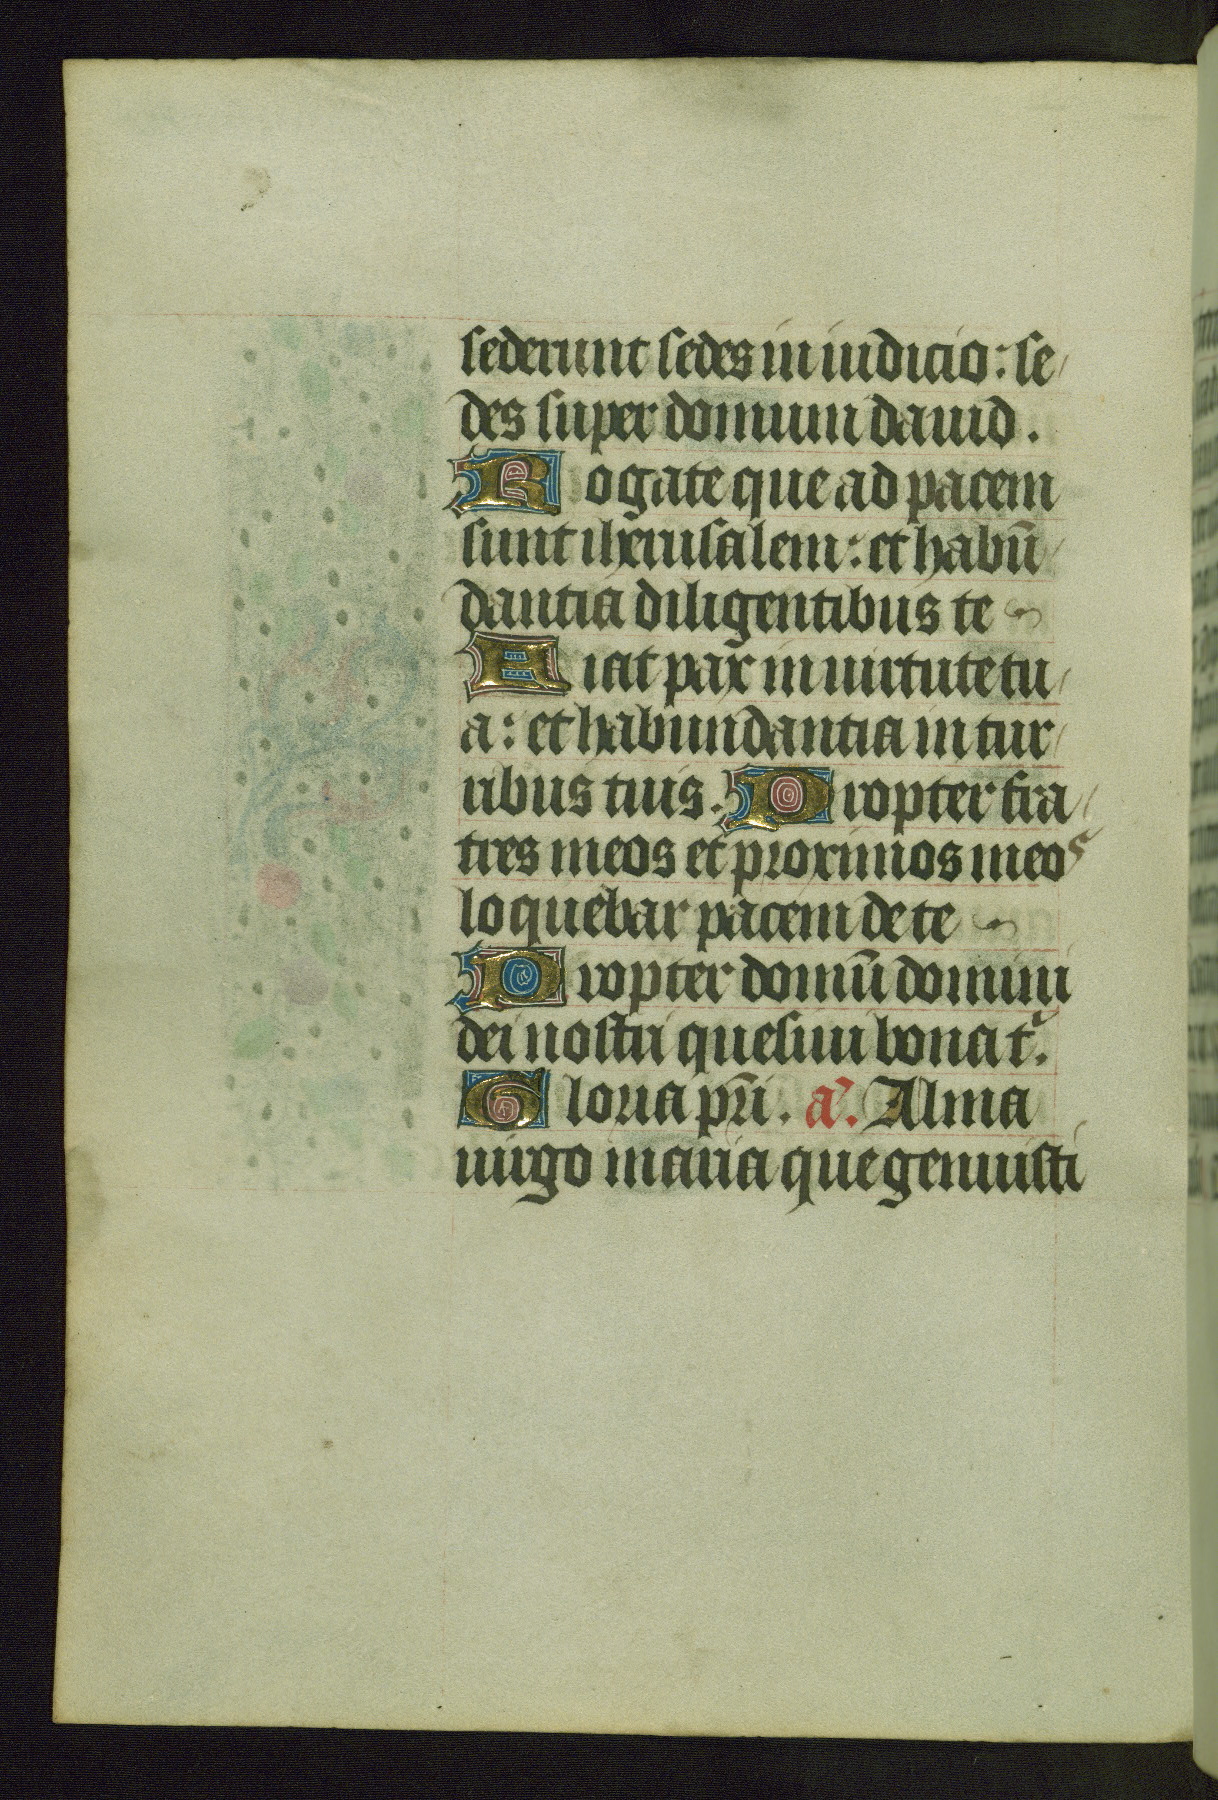 sederunt sedes in iudicio: se/
des super domum dauid.
Rogate que ad pacem
sunt iherusalem: et habū/
dantia diligentibus te
Fiat pax in uirtute tu/
a: et habundantia in tur/
ribus tuis. Propter fra/
tres meos et proximos meos
loquebar pacem de te
Propter domū domini
dei nostri quesiui bona t᷑.
Gloria pr̄i. a᷑. Alma
uirgo maria que genuisti